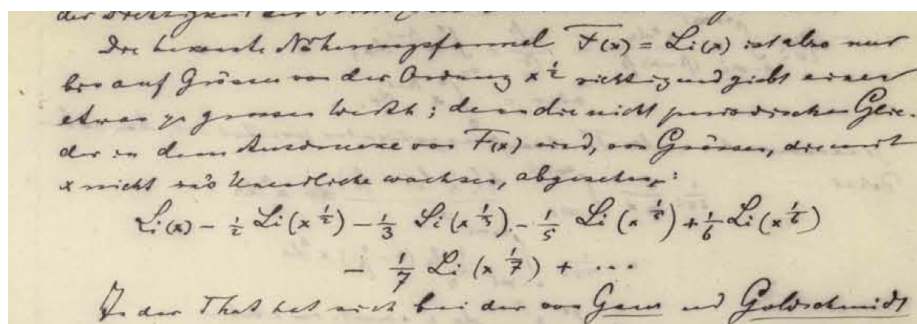 der Dichtigkeit der
Die bekannte Näherungsformel F(x) = Li(x) ist also nur
bis auf Grössen von der Ordnung x^½ richtig und giebt einen
etwas zu grossen Werth; denn die nicht periodischen Glie-
der in dem Ausdrucke von F(x) sind, von Grössen, die mit
x nicht in's Unendliche wachsen, abgesehen:
Li(x) - 1/2 Li(x^1/2) - 1/3 Li(x^1/3) - 1/5 Li(x^1/5) + 1/6 Li(x^1/6)
- 1/7 Li(x^1/7) + ...
In der That hat sich bei der von Gauss und Goldschmidt